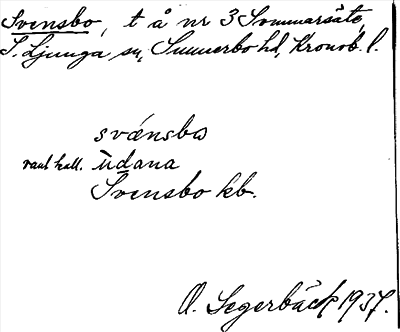 Svensbo, t å nr 3 Sommarsäte,
S. Ljunga sn, Sunnerbo hd, Kronob. l.
svænsbω
vanl kall. ùdana
Svensbo kb.
O. Segerbäck 1937.